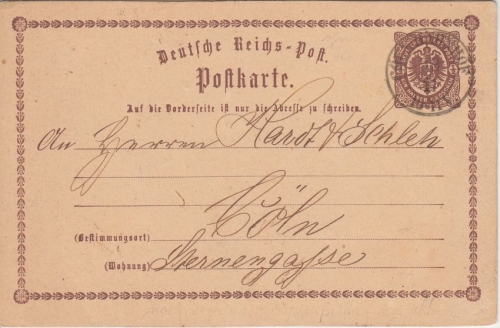 Deutsche Reichs-Post.
Postkarte.
Auf die Vorderseite ist nur die Adresse zu schreiben.
An Herren Hardt & Schletz
Cöln
(Bestimmungsort)
(Wohnung) Sternengasse